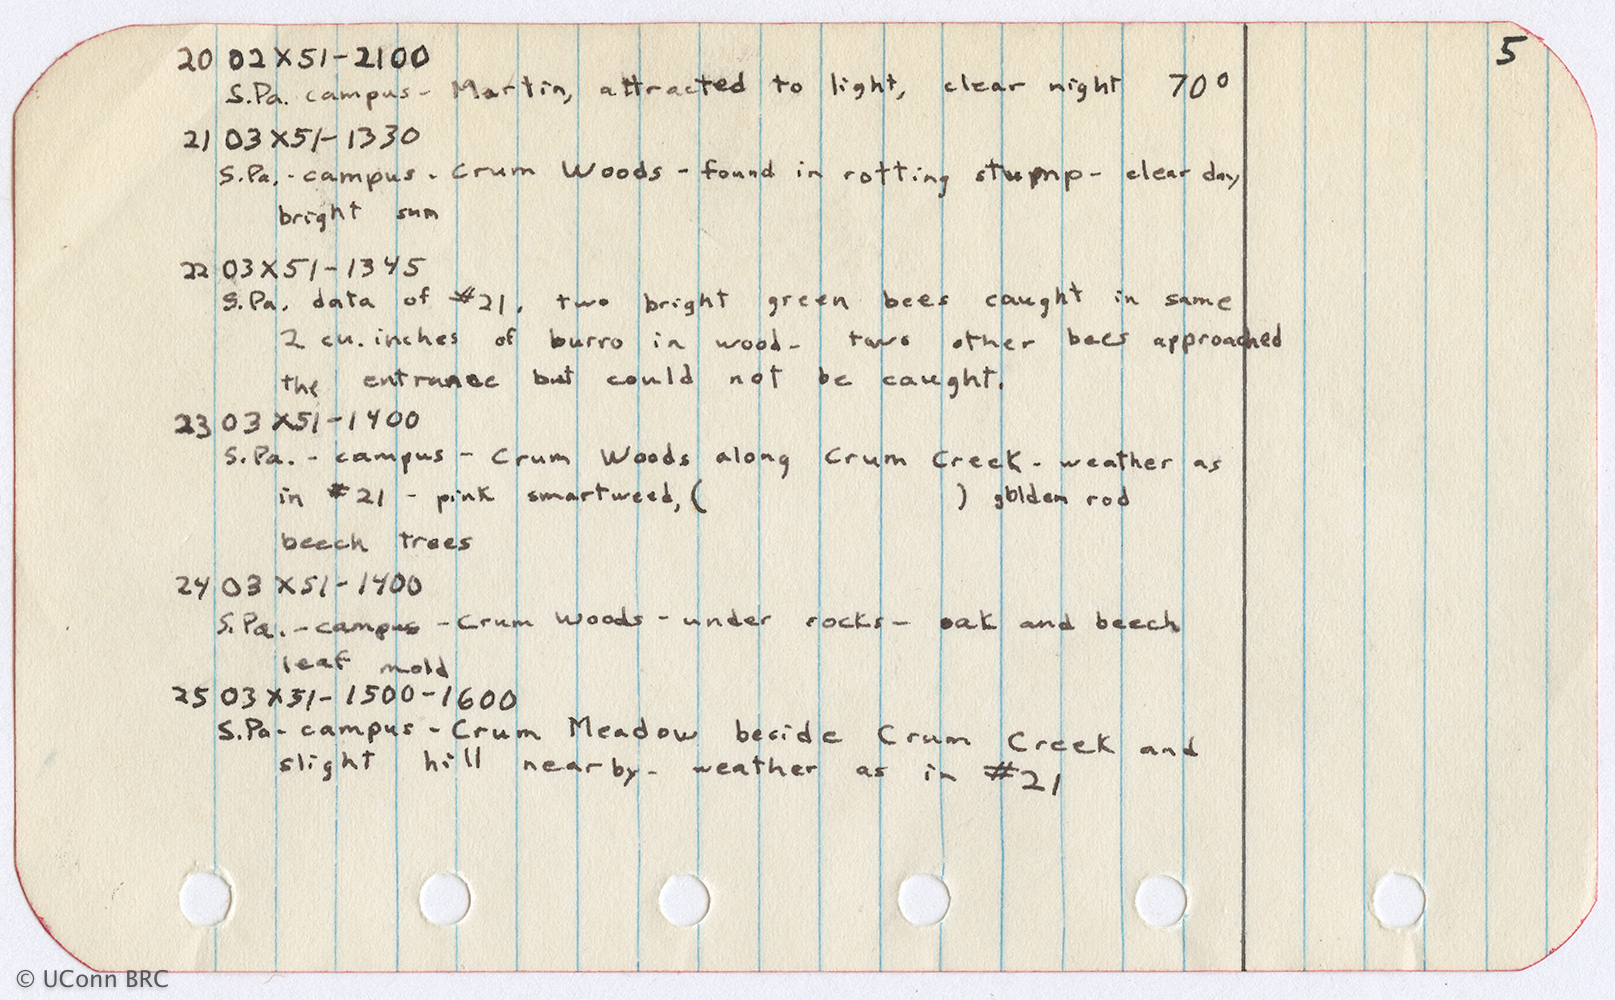 5
20 02X51-2100
S.Pa. campus - Martin, attracted to light, clear night 70°
21 03X51-1330
S.Pa. - campus - Crum Woods - found in rotting stump - clear day,
bright sun
22 03X51-1345
S.Pa. data of #21, two bright green bees caught in same
2 cu. inches of burro in wood - two other bees approached
the entrance but could not be caught.
23 03X51-1400
S.Pa. - campus - Crum Woods along Crum Creek - weather as
in #21 - pink smartweed, ( ) golden rod
beech trees
24 03X51-1400
S.Pa. - campus - Crum Woods - under rocks - oak and beech
leaf mold
25 03X51-1500-1600
S.Pa - campus - Crum Meadow beside Crum Creek and
slight hill nearby - weather as in #21
© UConn BRC